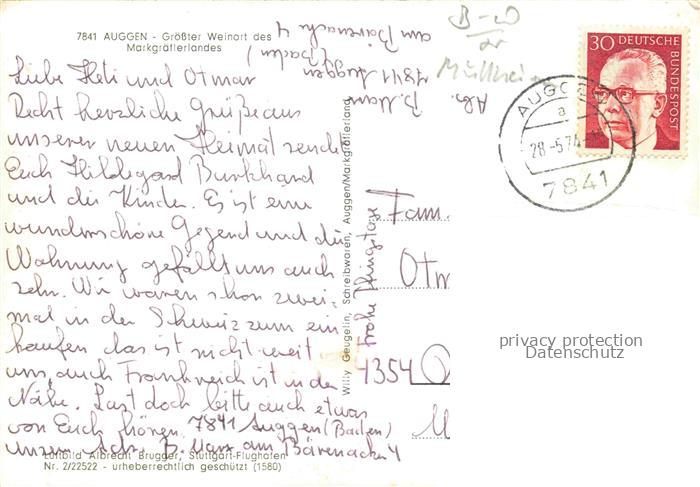 7841 AUGGEN - Größter Weinort des
Markgräflerlandes
am Bärenacker 4
(Baden)
7841 Auggen
B. Marx
Abs.
B-W
Müllheim
30 DEUTSCHE
BUNDESPOST
AUGGEN
a
28.-5.74
7841
Liebe Heti und Otmar
Recht herzliche Grüße aus
unserer neuen Heimat sende
Euch Hildegard Burkhard
und die Kinder. Es ist eine
wunderschöne Gegend und die
Wohnung gefällt uns auch
sehr. Wir waren schon zwei-
mal in der Schweiz zum ein
kaufen das ist nicht weit
uns, auch Frankreich ist in der
Nähe. Last doch bitte auch etwas
von Euch hören. 7841 Auggen (Baden)
unsere Adr. B. Marx am Bärenacker 4
Luftbild Albrecht Brugger, Stuttgart-Flughafen
Nr. 2/22522 - urheberrechtlich geschützt (1580)
Willy Geugelin, Schreibwaren, Auggen/Markgräflerland
Frohe Pfingsttage
Fam.
Otm
4354
privacy protection
Datenschutz